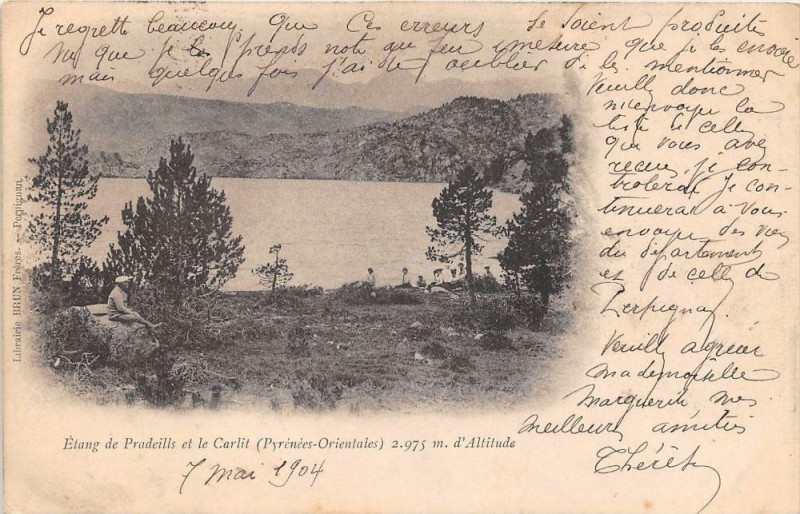 Je regrette beaucoup que ces erreurs se soient produites
vu que je les prends note au fur et mesure que je les envoie
mais quelques fois j'ai du oublier de le mentionner
Veuillez donc
m'envoyer la
liste de celles
que vous avez
recues je con-
trolerai je con-
tinuerai à vous
envoyer des vues
du département
et de celles de
Perpignan.
Veuillez agréer
mademoiselle
Marguerite mes
meilleurs amitiés
Thérèse
Librairie BRUN Frères. — Perpignan.
Étang de Pradeills et le Carlit (Pyrénées-Orientales) 2.975 m. d'Altitude
7 Mai 1904